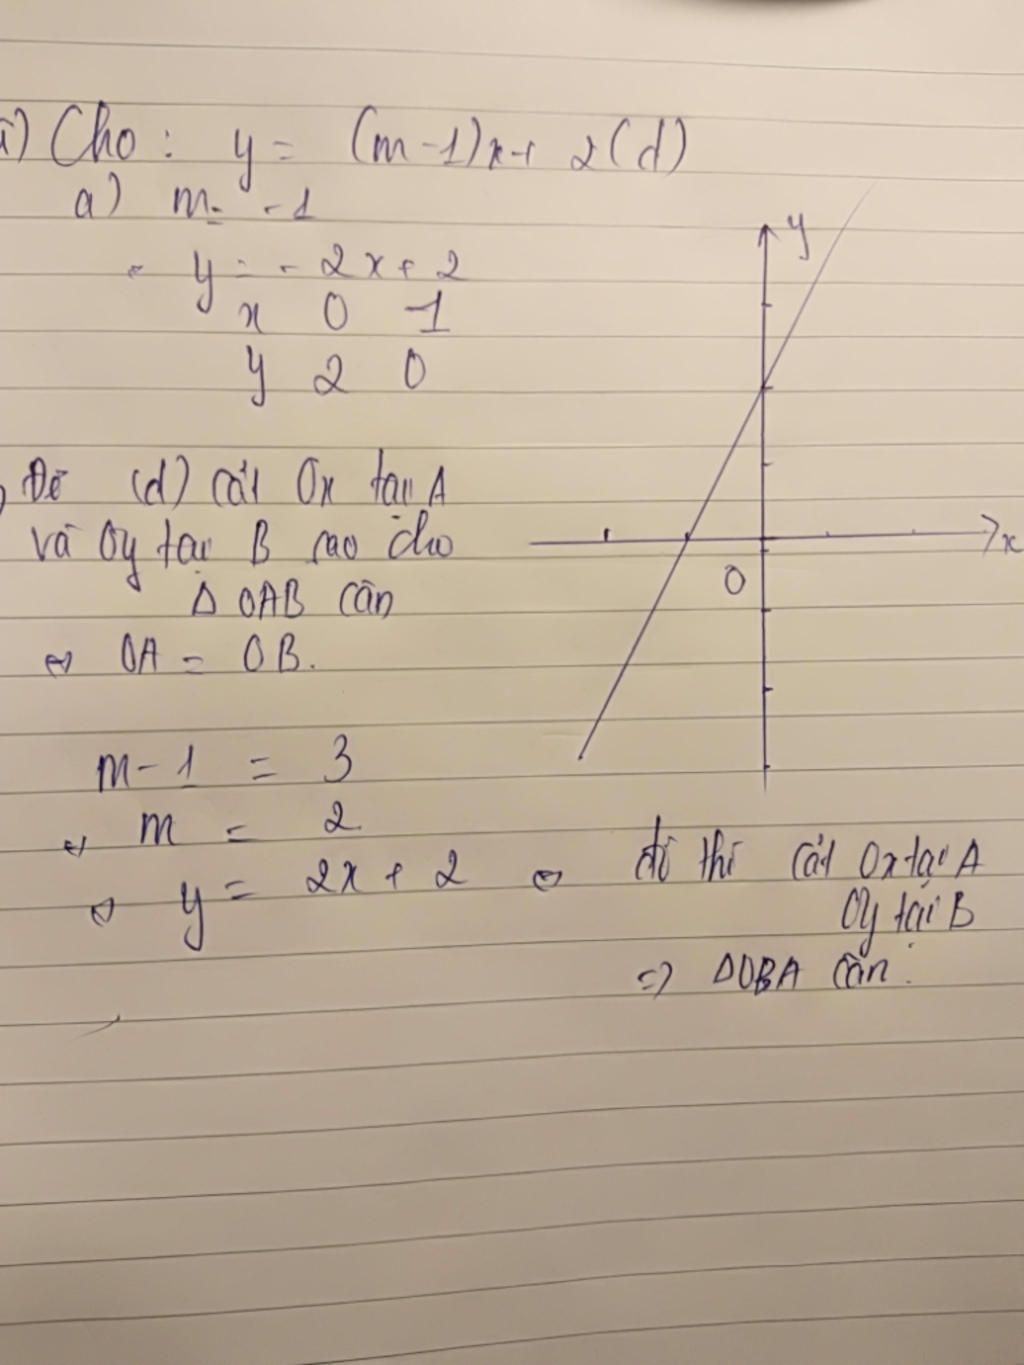 Cho: y = (m-1)x+ 2 (d)
a) m = -1
y = -2x+2
x 0 -1
y 2 0
y
x
0
Để (d) cắt Ox tại A
và Oy tại B sao cho
Δ OAB cân
⇔ OA = OB.
m-1 = 3
⇔ m = 2
⇔ y = 2x + 2 ⇔ đồ thị cắt Ox tại A
Oy tại B
=> ΔOBA cân.